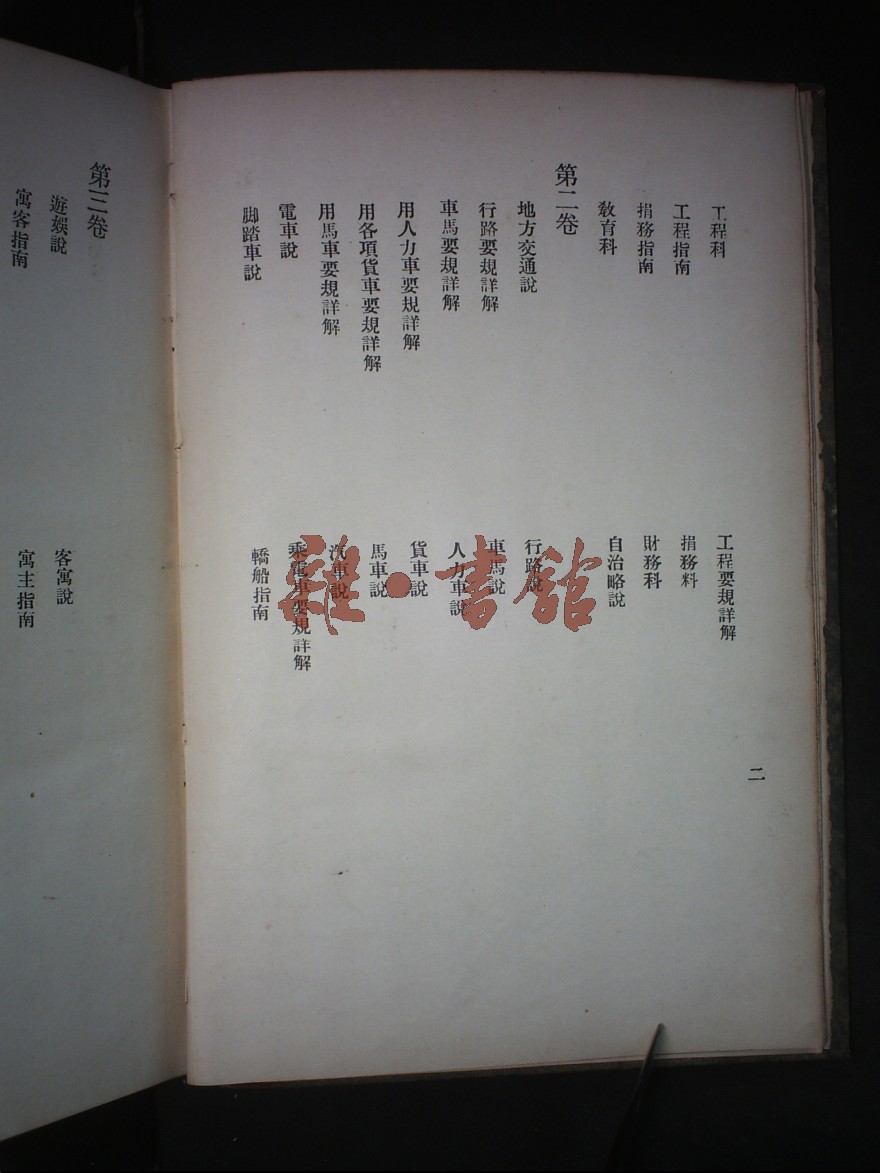 二
工程科
工程要規詳解
工程指南
捐務料
捐務指南
財務科
敎育科
自治略說
第二卷
地方交通說
行路說
行路要規詳解
車馬說
車馬要規詳解
人力車說
用人力車要規詳解
貨車說
用各項貨車要規詳解
馬車說
用馬車要規詳解
汽車說
電車說
乘電車要規詳解
脚踏車說
轎船指南
第三卷
遊娛說
客寓說
寓客指南
寓主指南
雜·書館